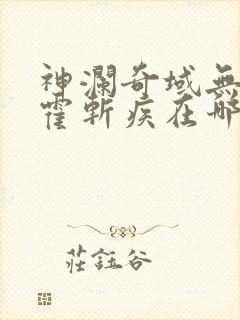 神瀾奇域無
霍斬疾在哪
莊鈺谷